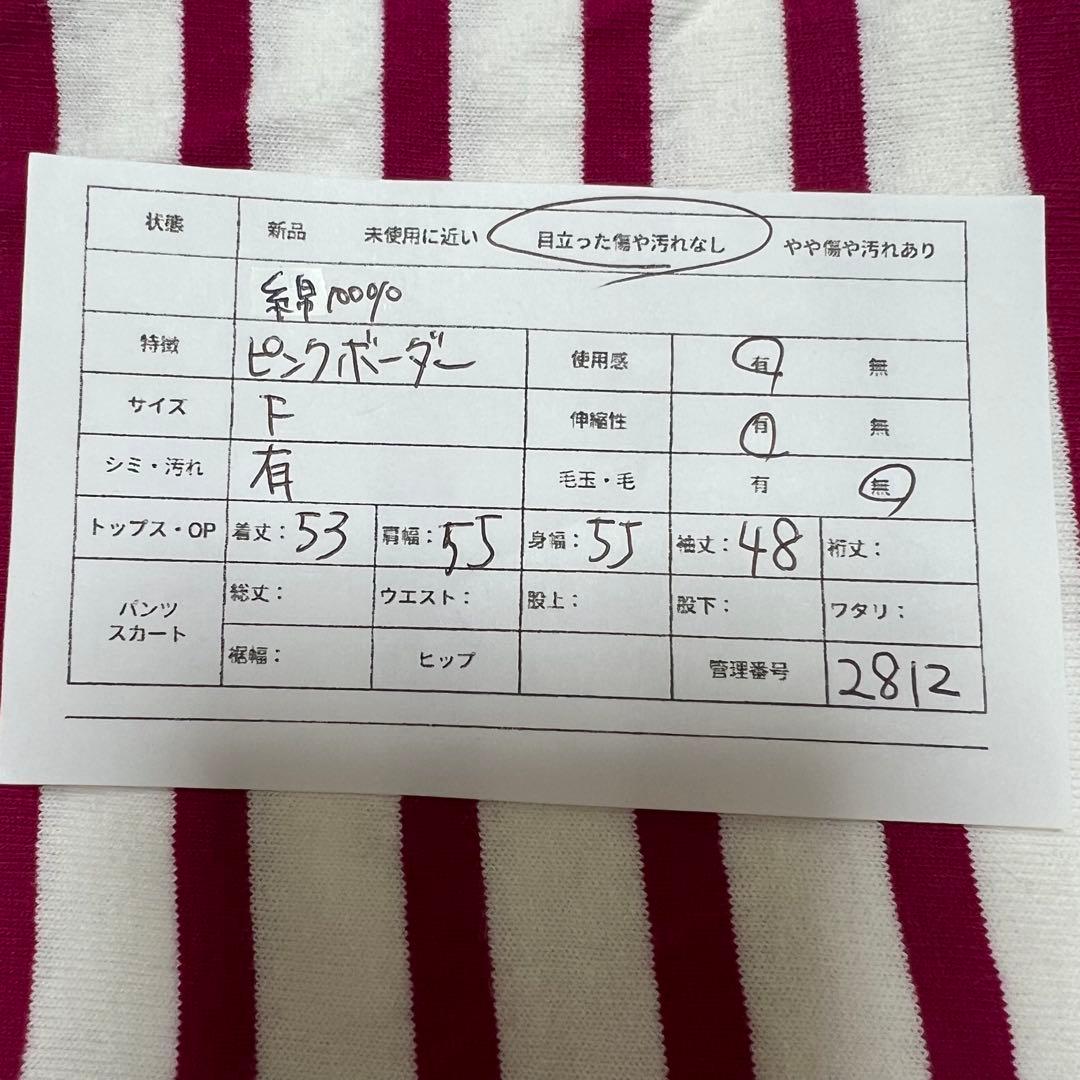 状態 新品 未使用に近い 目立った傷や汚れなし やや傷や汚れあり
綿100%
特徴 ピンクボーダー 使用感 有 無
サイズ F 伸縮性 有 無
シミ・汚れ 有 毛玉・毛 有 無
トップス・OP 着丈：53 肩幅：55 身幅：55 袖丈：48 裄丈：
パンツ スカート 総丈： ウエスト： 股上： 股下： ワタリ：
裾幅： ヒップ 管理番号 2812